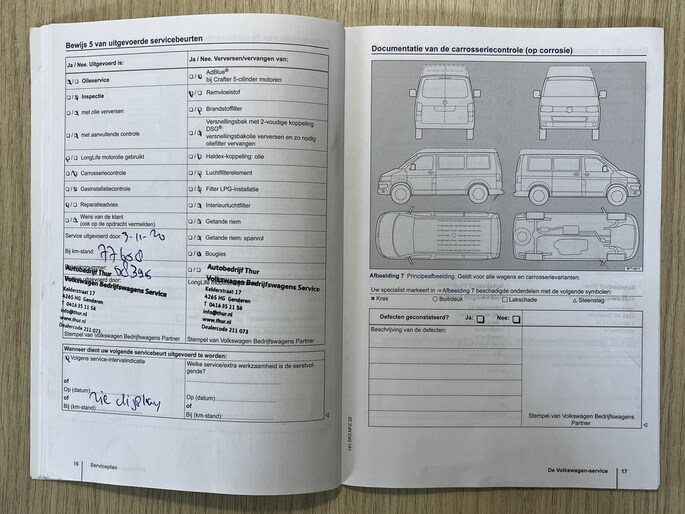 Bewijs 5 van uitgevoerde servicebeurten
Ja / Nee. Uitgevoerd is:
Ja / Nee. Verversen/vervangen van:
Olieservice
AdBlue®
bij Crafter 5-cilinder motoren
Inspectie
Remvloeistof
met olie verversen
Brandstoffilter
met aanvullende controle
Versnellingsbak met 2-voudige koppeling
DSG®:
versnellingsbakolie verversen en zo nodig
oliefilter vervangen
LongLife motorolie gebruikt
Haldex-koppeling: olie
Carrosseriecontrole
Luchtfilterelement
Gasinstallatiecontrole
Filter LPG-installatie
Reparatieadvies
Interieurluchtfilter
Wens van de klant
(ook op de opdracht vermelden)
Getande riem
Service uitgevoerd door:
9-11-20
Getande riem: spanrol
Bij km-stand:
77658
Bougies
uitgevoerd door:
Autobedrijf Thur
Volkswagen Bedrijfswagens Service
Kelderstraat 17
4265 HG Genderen
T 0416 35 11 56
info@thur.nl
www.thur.nl
Dealercode 211 073
Stempel van Volkswagen Bedrijfswagens Partner
Autobedrijf Thur
Volkswagen Bedrijfswagens Service
LongLife
Kelderstraat 17
4265 HG Genderen
T 0416 35 11 56
info@thur.nl
www.thur.nl
Dealercode 211 073
Stempel van Volkswagen Bedrijfswagens Partner
Wanneer dient uw volgende servicebeurt uitgevoerd te worden:
Volgens service-intervalindicatie
of
Op (datum):
zie display
of
Bij (km-stand):
Welke service/extra werkzaamheid is de eerstvol-
gende?
of
Op (datum):
of
Bij (km-stand):
16
Serviceplan
141.5R3.NFZ.32
Documentatie van de carrosseriecontrole (op corrosie)
Afbeelding 7 Principeafbeelding. Geldt voor alle wagens en carrosserievarianten.
Uw specialist markeert in ⇒ Afbeelding 7 beschadigde onderdelen met de volgende symbolen:
✕ Kras
○ Buil/deuk
□ Lakschade
△ Steenslag
Defecten geconstateerd?
Ja:
Nee:
Beschrijving van de defecten:
Stempel van Volkswagen Bedrijfswagens
Partner
De Volkswagen-service
17